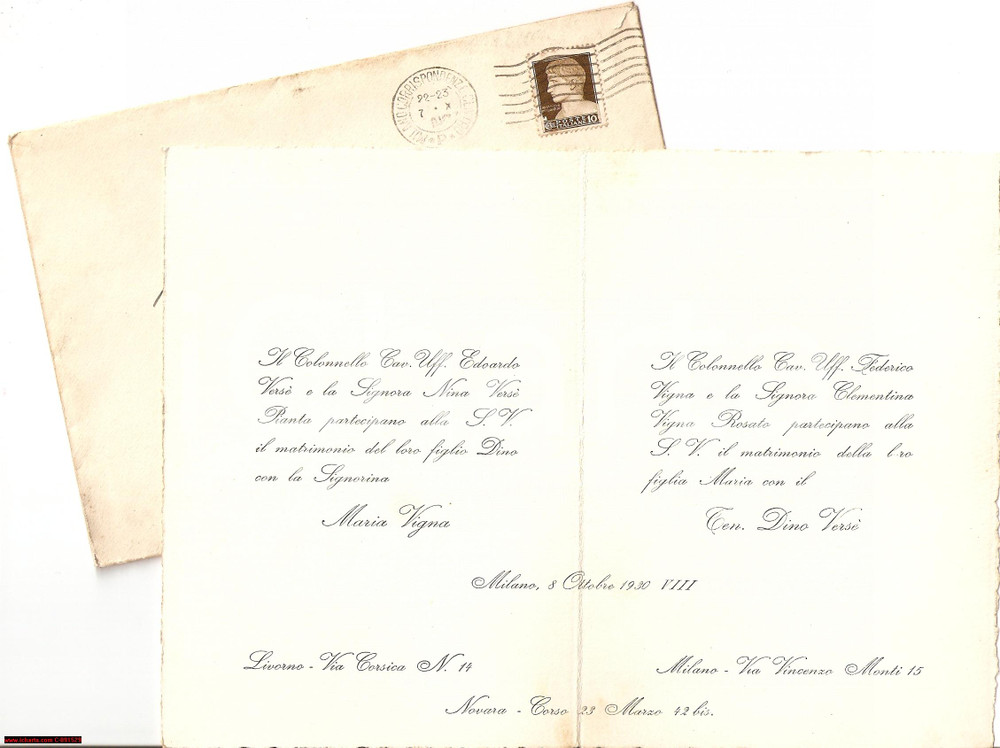 MILANO CORRISPONDENZE
22-23
7 · X
POSTE ITALIANE 10
Il Colonnello Cav. Uff. Edoardo
Versè e la Signora Nina Versè
Pianta partecipano alla S. V.
il matrimonio del loro figlio Dino
con la Signorina
Maria Vigna
Il Colonnello Cav. Uff. Federico
Vigna e la Signora Clementina
Vigna Rosato partecipano alla
S. V. il matrimonio della l ro
figlia Maria con il
Ten. Dino Versè
Milano, 8 Ottobre 1930 VIII
Livorno - Via Corsica N. 14
Milano - Via Vincenzo Monti 15
Novara - Corso 23 Marzo 42 bis.